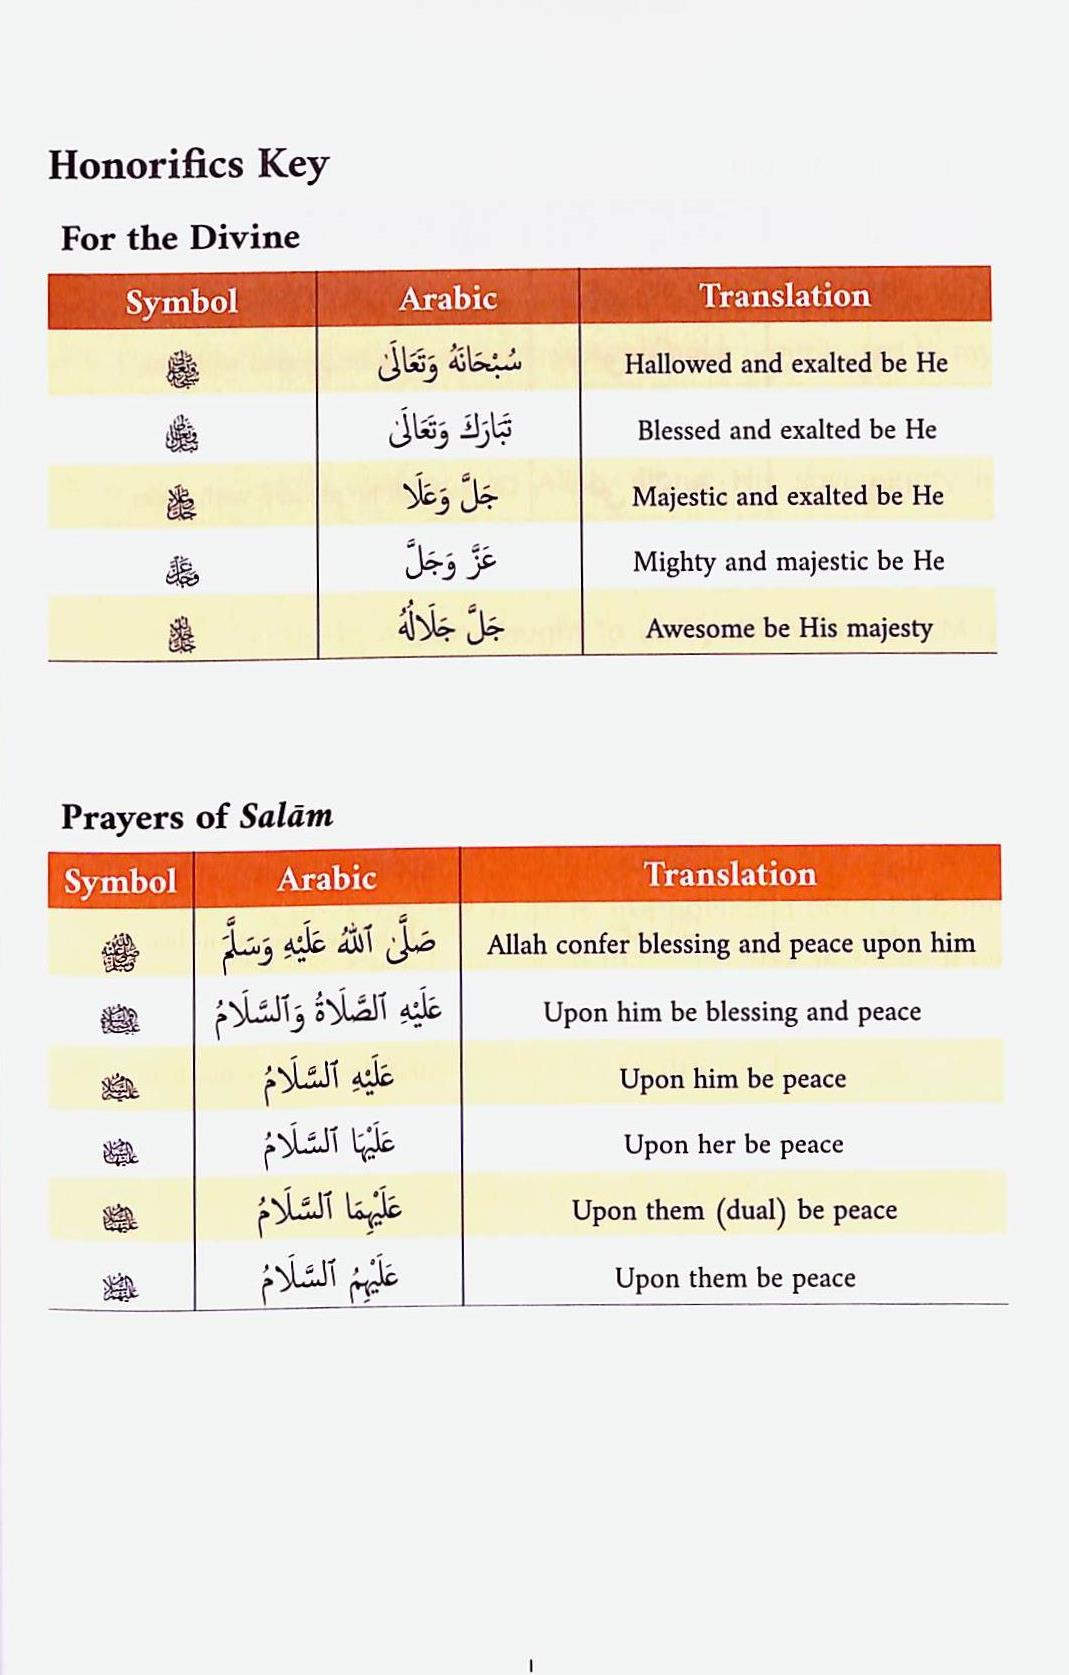 Honorifics Key
For the Divine
Symbol Arabic Translation
سُبْحَانَهُ وَتَعَالَىٰ Hallowed and exalted be He
تَبَارَكَ وَتَعَالَىٰ Blessed and exalted be He
جَلَّ وَعَلَا Majestic and exalted be He
عَزَّ وَجَلَّ Mighty and majestic be He
جَلَّ جَلَالُهُ Awesome be His majesty
Prayers of Salām
Symbol Arabic Translation
ﷺ صَلَّىٰ ٱللهُ عَلَيْهِ وَسَلَّمَ Allah confer blessing and peace upon him
عَلَيْهِ ٱلصَّلَاةُ وَٱلسَّلَامُ Upon him be blessing and peace
عَلَيْهِ ٱلسَّلَامُ Upon him be peace
عَلَيْهَا ٱلسَّلَامُ Upon her be peace
عَلَيْهِمَا ٱلسَّلَامُ Upon them (dual) be peace
عَلَيْهِمُ ٱلسَّلَامُ Upon them be peace
I